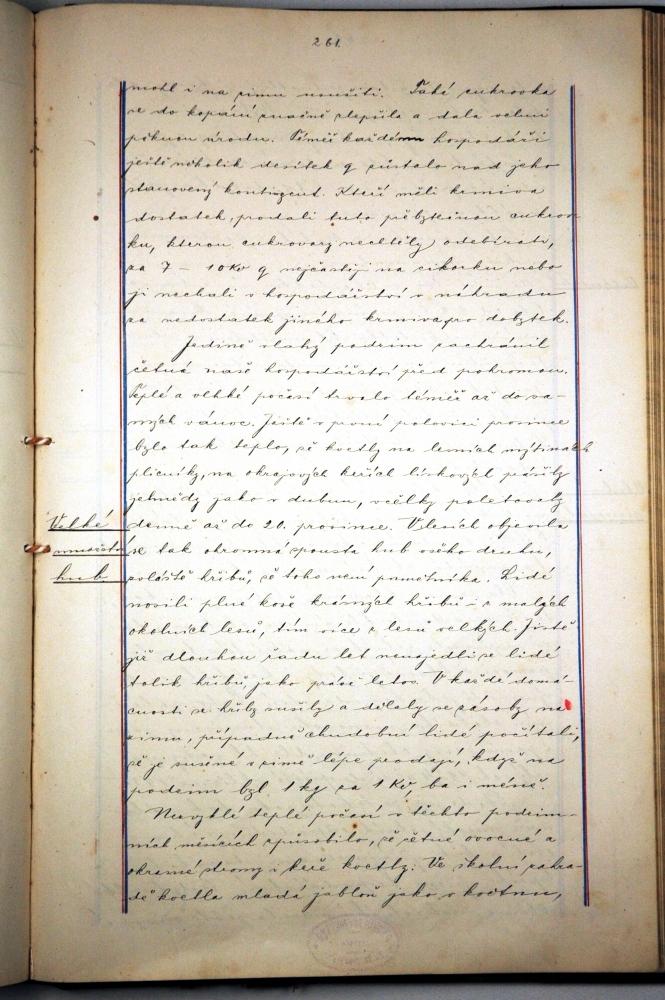 261.
mohl i na zimu nasušiti. Také cukrovka
se do kopání značně zlepšila a dala velmi
pěknou úrodu. Téměř každému hospodáři
ještě několik desítek q zůstalo nad jeho
stanovený kontingent. Kteří měli krmiva
dostatek, prodali tuto přebytečnou cukrov
ku, kterou cukrovary nechtěly odebírati,
za 7 – 10 Kč q nejčastěji na cikorku nebo
ji nechali v hospodářství v náhradu
za nedostatek jiného krmiva pro dobytek.
Jedině vlahý podzim zachránil
četná naše hospodářství před pohromou.
Teplé a vlhké počasí trvalo téměř až do sa-
mých vánoc. Ještě v první polovici prosince
bylo tak teplo, že kvetly na lesních mýtinách
plicníky, na okrajových keřích lískových pášily
jehnědy jako v dubnu, včelky poletovaly
Velké
denně až do 20. prosince. V lesích objevila
množství
se tak ohromná spousta hub všeho druhu,
hub
zvláště hřibů, že toho není pamětníka. Lidé
nosili plné koše krásných hřibů i z malých
okolních lesů, tím více z lesů velkých. Jistě
již dlouhou řadu let nenajedli se lidé
tolik hřibů, jako právě letos. V každé domá-
cnosti se hřiby sušily a dělaly se zásoby na
zimu, případně chudobní lidé počítali,
že je sušené v zimě lépe prodají, když na
podzim byl 1 kg za 1 Kč, ba i méně.
Neobvyklé teplé počasí v těchto podzim-
ních měsících způsobilo, že četné ovocné a
okrasné stromy i keře kvetly. Ve školní zahra-
dě kvetla mladá jabloň jako v květnu,